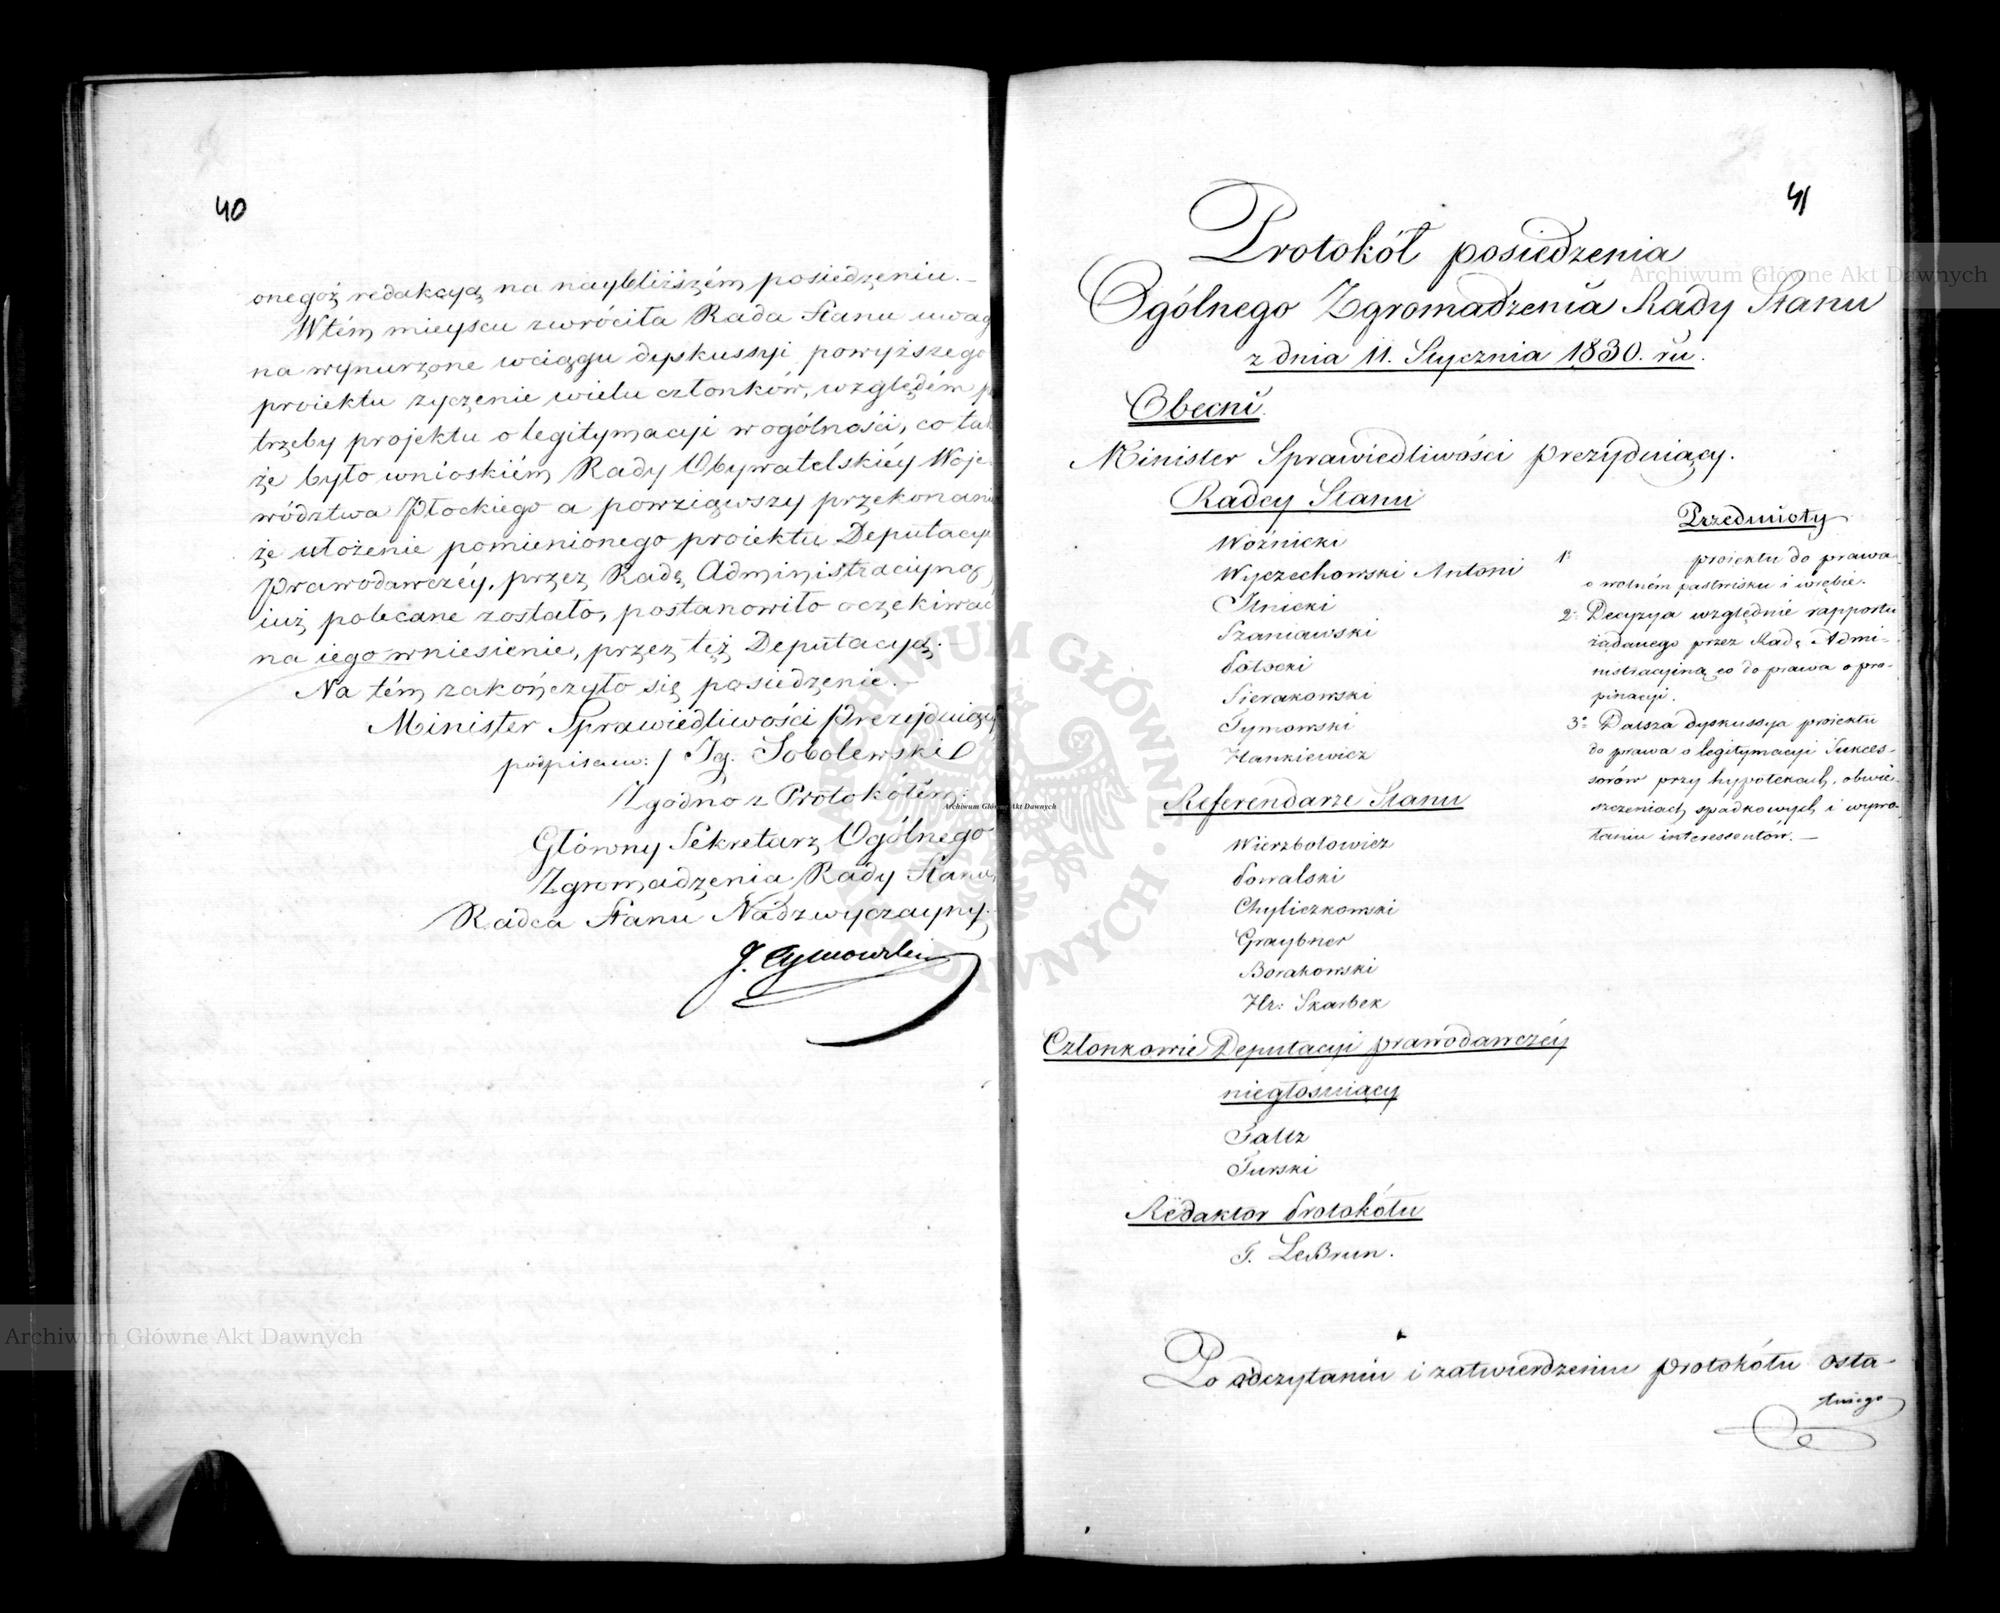 40
onegoż redakcyą na naybliższém posiedzeniu.
Wtém mieyscu zwróciła Rada Stanu uwag
na wynurzone wciągu dyskussyi powyższego
proiektu życzenie wielu członków, względém
trzeby projektu o legitymacyi w ogólności, co tak
że było wnioskiém Rady Obywatelskiéy Woje-
wództwa Płockiego a powziąwszy przekonani
że ułożenie pomienionego proiektu Deputacyi
Prawodawczéy, przez Radę Administracyiną
iuż polecane zostało, postanowiło oczekiwać
na iego wniesienie, przez też Deputacyą.
Na tém zakończyło się posiedzenie.
Minister Sprawiedliwości Prezyduiący
podpisano: / Ig. Sobolewski
Zgodno z Protokółém:
Główny Sekretarz Ogólnego
Zgromadzenia Rady Stanu,
Radca Stanu Nadzwyczayny.
J. Tymowski
41
Protokół posiedzenia
Ogólnego Zgromadzenia Rady Stanu
z dnia 11. Stycznia 1830. ru.
Obecni.
Minister Sprawiedliwości prezyduiący.
Radcy Stanu
Woźnicki
Wyczechowski Antoni
Ilnicki
Szaniawski
Potocki
Sierakowski
Tymowski
Hankiewicz
Referendarze Stanu
Wierzbołowicz
Kowalski
Chyliczkowski
Graybner
Borakowski
Hr: Skarbek
Członkowie Deputacyi prawodawczéy
niegłosuiący
Faltz
Turski
Redaktor Protokółu
F. LeBrun.
Przedmioty
1° proiektu do prawa
o wolném pastwisku i wrębie.
2° Decyzya względnie rapportu
żądanego przez Radę Admi-
nistracyiną co do prawa o pro-
pinacyi.
3° Dalsza dyskussya proiektu
do prawa o legitymacyi Sukces-
sorów przy hypotekach, obwie-
szczeniach spadkowych i wywo-
łaniu interessentów.
Po odczytaniu i zatwierdzeniu protokółu osta-
tniego
Archiwum Główne Akt Dawnych
Archiwum Główne Akt Dawnych
Archiwum Główne Akt Dawnych
ARCHIWUM GŁÓWNE AKT DAWNYCH